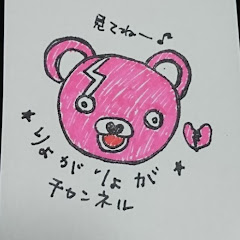 見てねー♪
★りょがりょが★
チャンネル